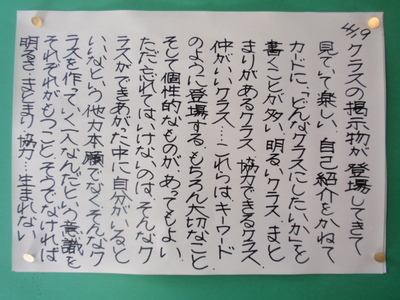 4/19
クラスの掲示物が登場してきて
見ていて楽しい。自己紹介をかねて
カードに「どんなクラスにしたいか」を
書くことが多い。明るいクラス、まと
まりがあるクラス、協力できるクラス、
仲がいいクラス…これらは、キーワード
のように登場する。もちろん大切なこと。
そして個性的なものがあってもよい。
ただ忘れてはいけないのは、そんなク
ラスができあがった中に自分がいると
いいなという他力本願でなく、そんなク
ラスを作っていく一人なんだという意識を
それぞれがもつこと。そうでなければ
明るさ・まとまり・協力…生まれない